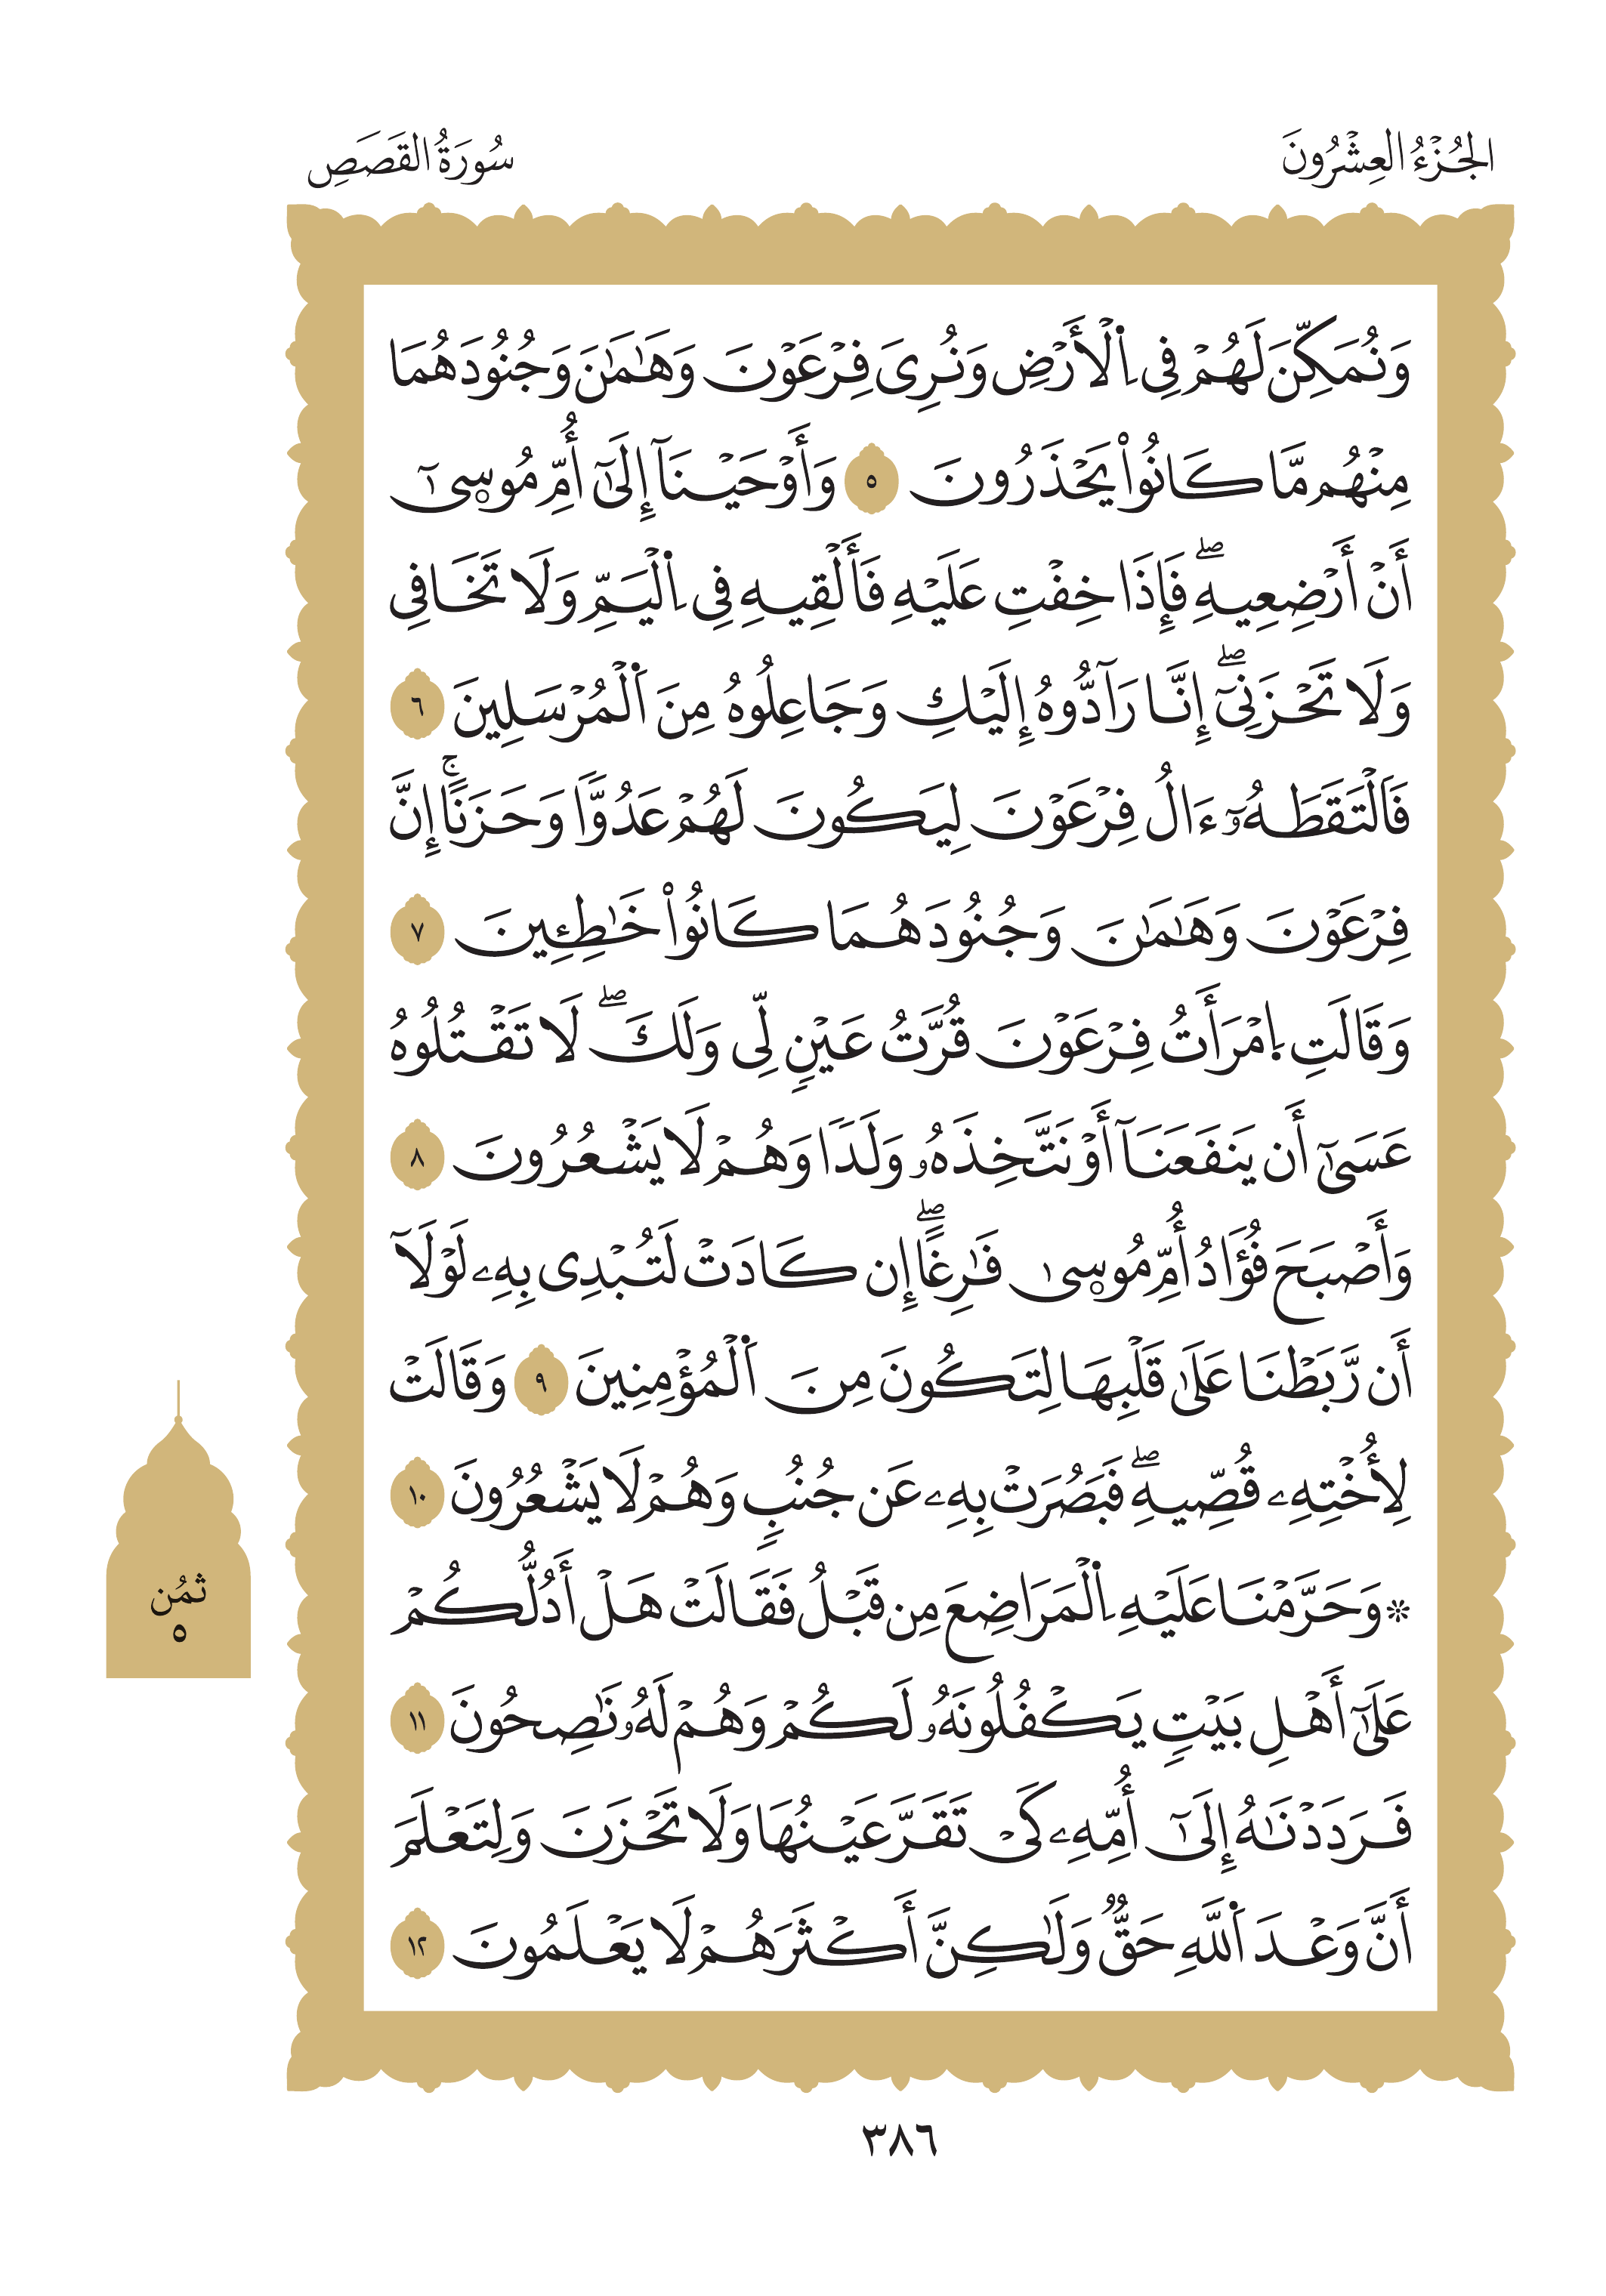 الجُزْءُ العِشْرُونَ
سُورَةُ القَصَصِ
وَنُمَكِّنَ لَهُمْ فِي اِ۬لْأَرْضِ وَنُرِيَ فِرْعَوْنَ وَهَٰمَٰنَ وَجُنُودَهُمَا
مِنْهُم مَّا كَانُواْ يَحْذَرُونَ ٥ وَأَوْحَيْنَآ إِلَىٰٓ أُمِّ مُوسۭىٰٓ
أَنْ أَرْضِعِيهِۖ فَإِذَا خِفْتِ عَلَيْهِ فَأَلْقِيهِ فِي اِ۬لْيَمِّ وَلَا تَخَافِي
وَلَا تَحْزَنِيٓۖ إِنَّا رَآدُّوهُ إِلَيْكِ وَجَاعِلُوهُ مِنَ اَ۬لْمُرْسَلِينَ ٦
فَالْتَقَطَهُۥٓ ءَالُ فِرْعَوْنَ لِيَكُونَ لَهُمْ عَدُوّاٗ وَحَزَناًۚ إِنَّ
فِرْعَوْنَ وَهَٰمَٰنَ وَجُنُودَهُمَا كَانُواْ خَٰطِـِٕينَ ٧
وَقَالَتِ اِ۪مْرَأَتُ فِرْعَوْنَ قُرَّتُ عَيْنٍ لِّي وَلَكَۖ لَا تَقْتُلُوهُ
عَسَىٰٓ أَن يَنفَعَنَآ أَوْ نَتَّخِذَهُۥ وَلَداٗ وَهُمْ لَا يَشْعُرُونَ ٨
وَأَصْبَحَ فُؤَادُ أُمِّ مُوسۭىٰ فَٰرِغاًۖ إِن كَادَتْ لَتُبْدِي بِهِۦ لَوْلَآ
أَن رَّبَطْنَا عَلَىٰ قَلْبِهَا لِتَكُونَ مِنَ اَ۬لْمُؤْمِنِينَ ٩ وَقَالَتْ
لِأُخْتِهِۦ قُصِّيهِۖ فَبَصُرَتْ بِهِۦ عَن جُنُبٍ وَهُمْ لَا يَشْعُرُونَ ١٠
۞ وَحَرَّمْنَا عَلَيْهِ اِ۬لْمَرَاضِعَ مِن قَبْلُ فَقَالَتْ هَلْ أَدُلُّكُمْ
عَلَىٰٓ أَهْلِ بَيْتٍ يَكْفُلُونَهُۥ لَكُمْ وَهُمْ لَهُۥ نَٰصِحُونَ ١١
فَرَدَدْنَٰهُ إِلَىٰٓ أُمِّهِۦ كَيْ تَقَرَّ عَيْنُهَا وَلَا تَحْزَنَ وَلِتَعْلَمَ
أَنَّ وَعْدَ اَ۬للَّهِ حَقّٞ وَلَٰكِنَّ أَكْثَرَهُمْ لَا يَعْلَمُونَ ١٢
ثمُن
٥
٣٨٦